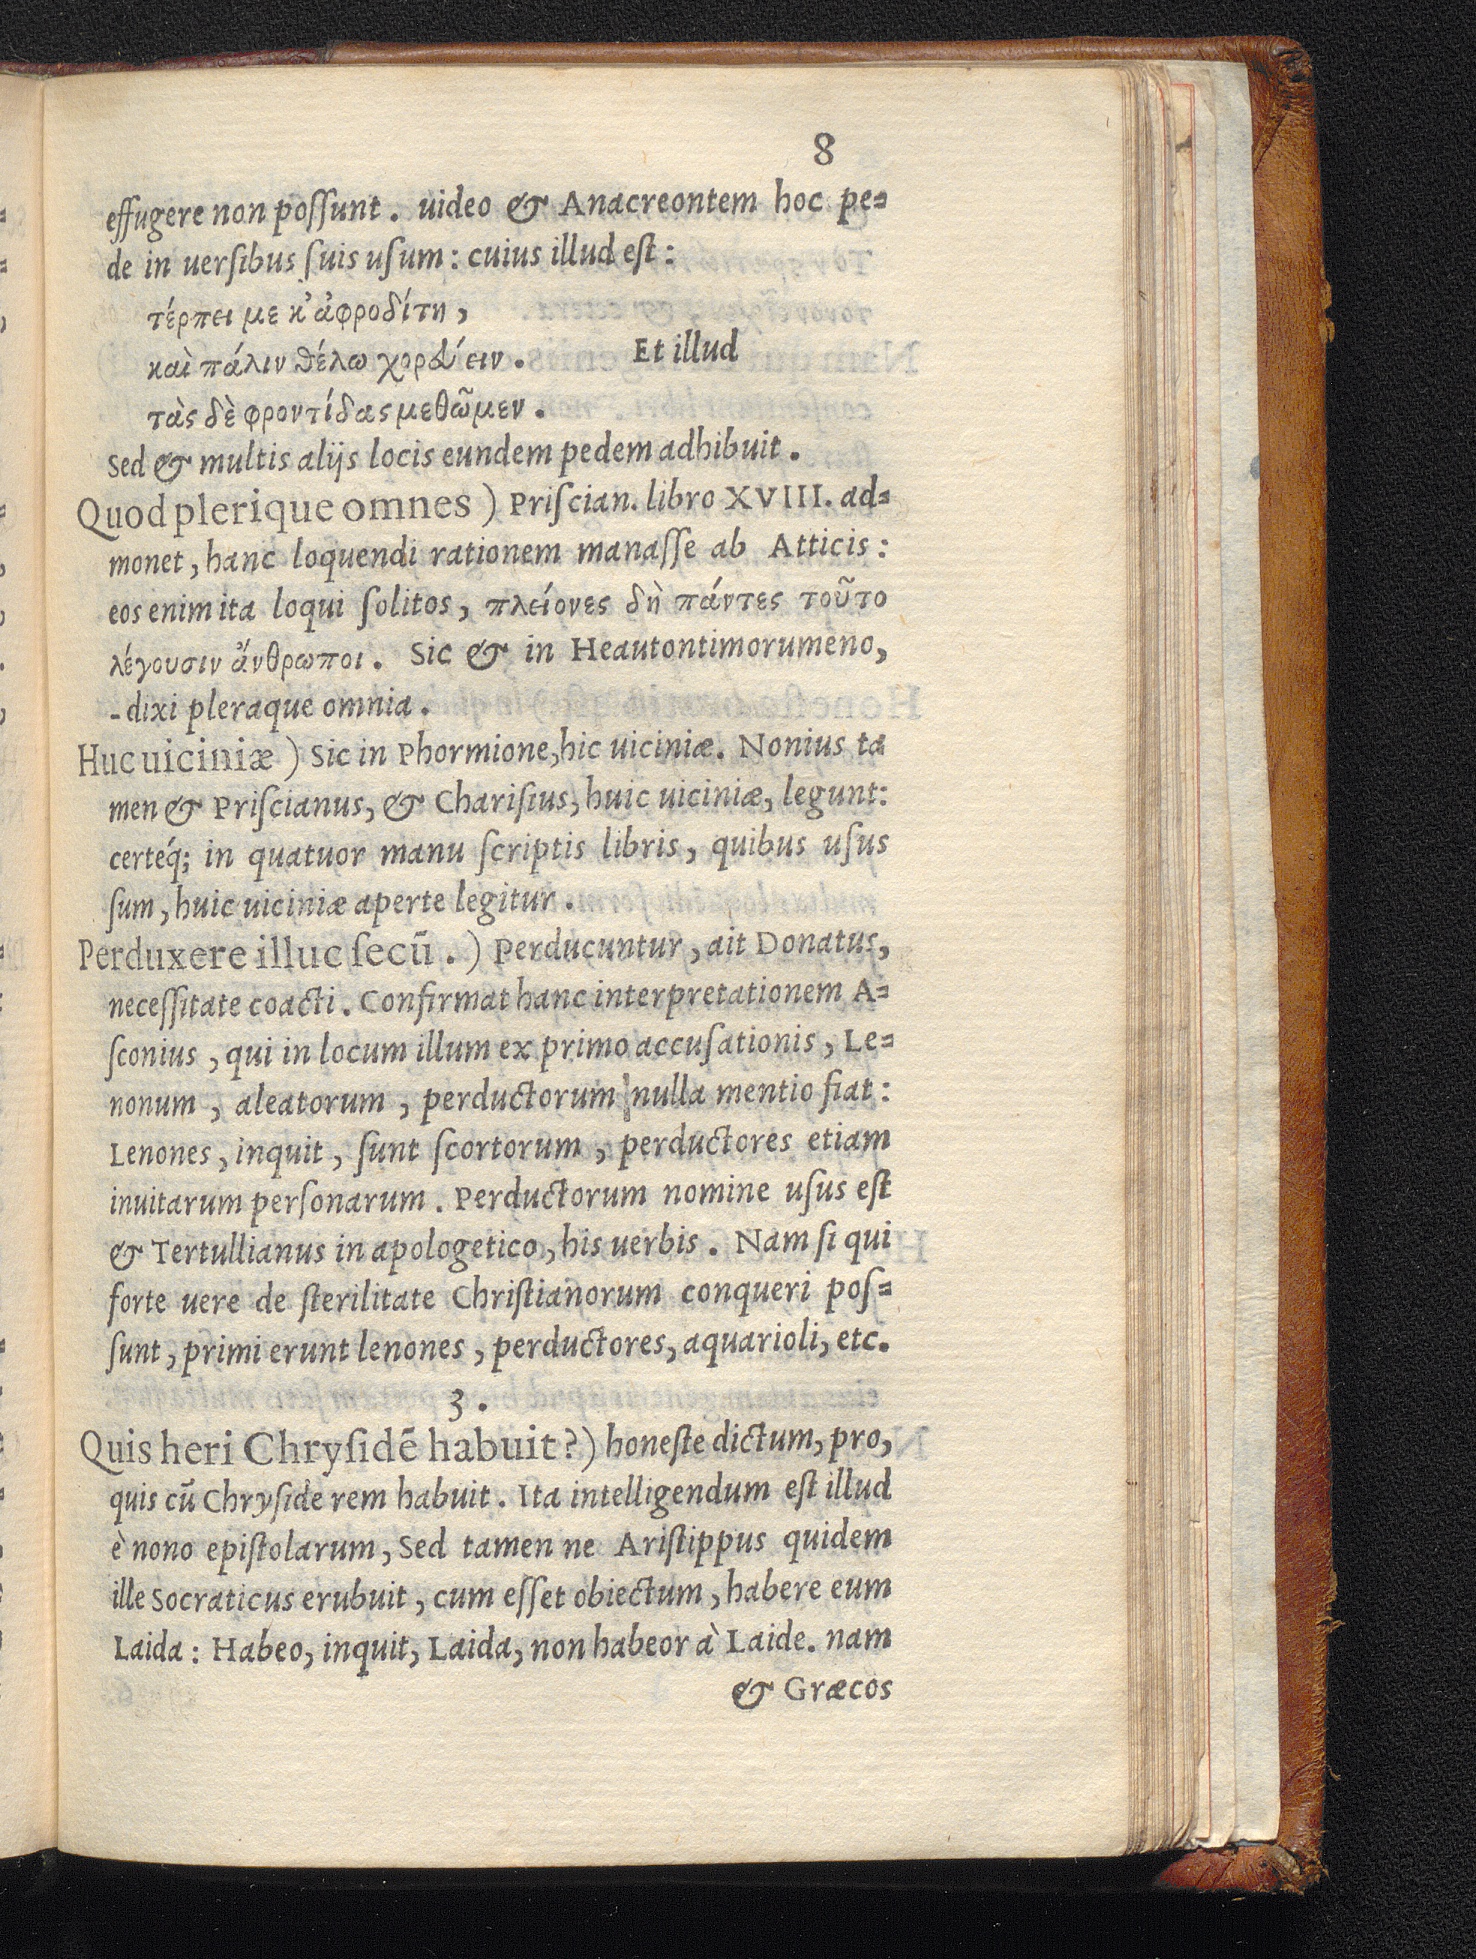 8
effugere non poſſunt. uideo & Anacreontem hoc pe-
de in uerſibus ſuis uſum: cuius illud eſt:
τέρπει με κ' ἀφροδίτη,
καὶ πάλιν θέλω χορεύειν. Et illud
τὰς δὲ φροντίδας μεθῶμεν.
Sed & multis alijs locis eundem pedem adhibuit.
Quod plerique omnes) Priſcian. libro XVIII. ad-
monet, hanc loquendi rationem manaſſe ab Atticis:
eos enim ita loqui ſolitos, πλείονες δὴ πάντες τοῦτο
λέγουσιν ἄνθρωποι. Sic & in Heautontimorumeno,
dixi pleraque omnia.
Huc uiciniæ) Sic in Phormione, hic uiciniæ. Nonius ta
men & Priſcianus, & Chariſius, huic uiciniæ, legunt:
certéq; in quatuor manu ſcriptis libris, quibus uſus
ſum, huic uiciniæ aperte legitur.
Perduxere illuc ſecū.) Perducuntur, ait Donatus,
neceſſitate coacti. Confirmat hanc interpretationem A-
ſconius, qui in locum illum ex primo accuſationis, Le-
nonum, aleatorum, perductorum nulla mentio fiat:
Lenones, inquit, ſunt ſcortorum, perductores etiam
inuitarum perſonarum. Perductorum nomine uſus eſt
& Tertullianus in apologetico, his uerbis. Nam ſi qui
forte uere de ſterilitate Chriſtianorum conqueri poſ-
ſunt, primi erunt lenones, perductores, aquarioli, etc.
3.
Quis heri Chryſidē habuit?) honeſte dictum, pro,
quis cū Chryſide rem habuit. Ita intelligendum eſt illud
è nono epiſtolarum, Sed tamen ne Ariſtippus quidem
ille Socraticus erubuit, cum eſſet obiectum, habere eum
Laida: Habeo, inquit, Laida, non habeor à Laide. nam
& Græcos